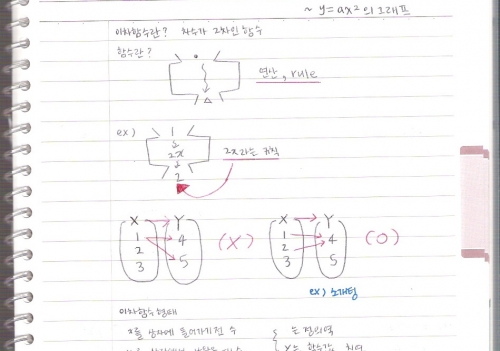 ~ y=ax²의 그래프
이차함수란? 차수가 2차인 함수
함수란?
연산, rule
ex) 1
2x
2
2x라는 규칙
X Y
1 4
2 5
3
(X)
X Y
1 4
2 5
3
(O)
ex) 소개팅
이차함수 형태
x를 상자에 들어가기 전 수
는 정의역
Y는 함수값, 치역